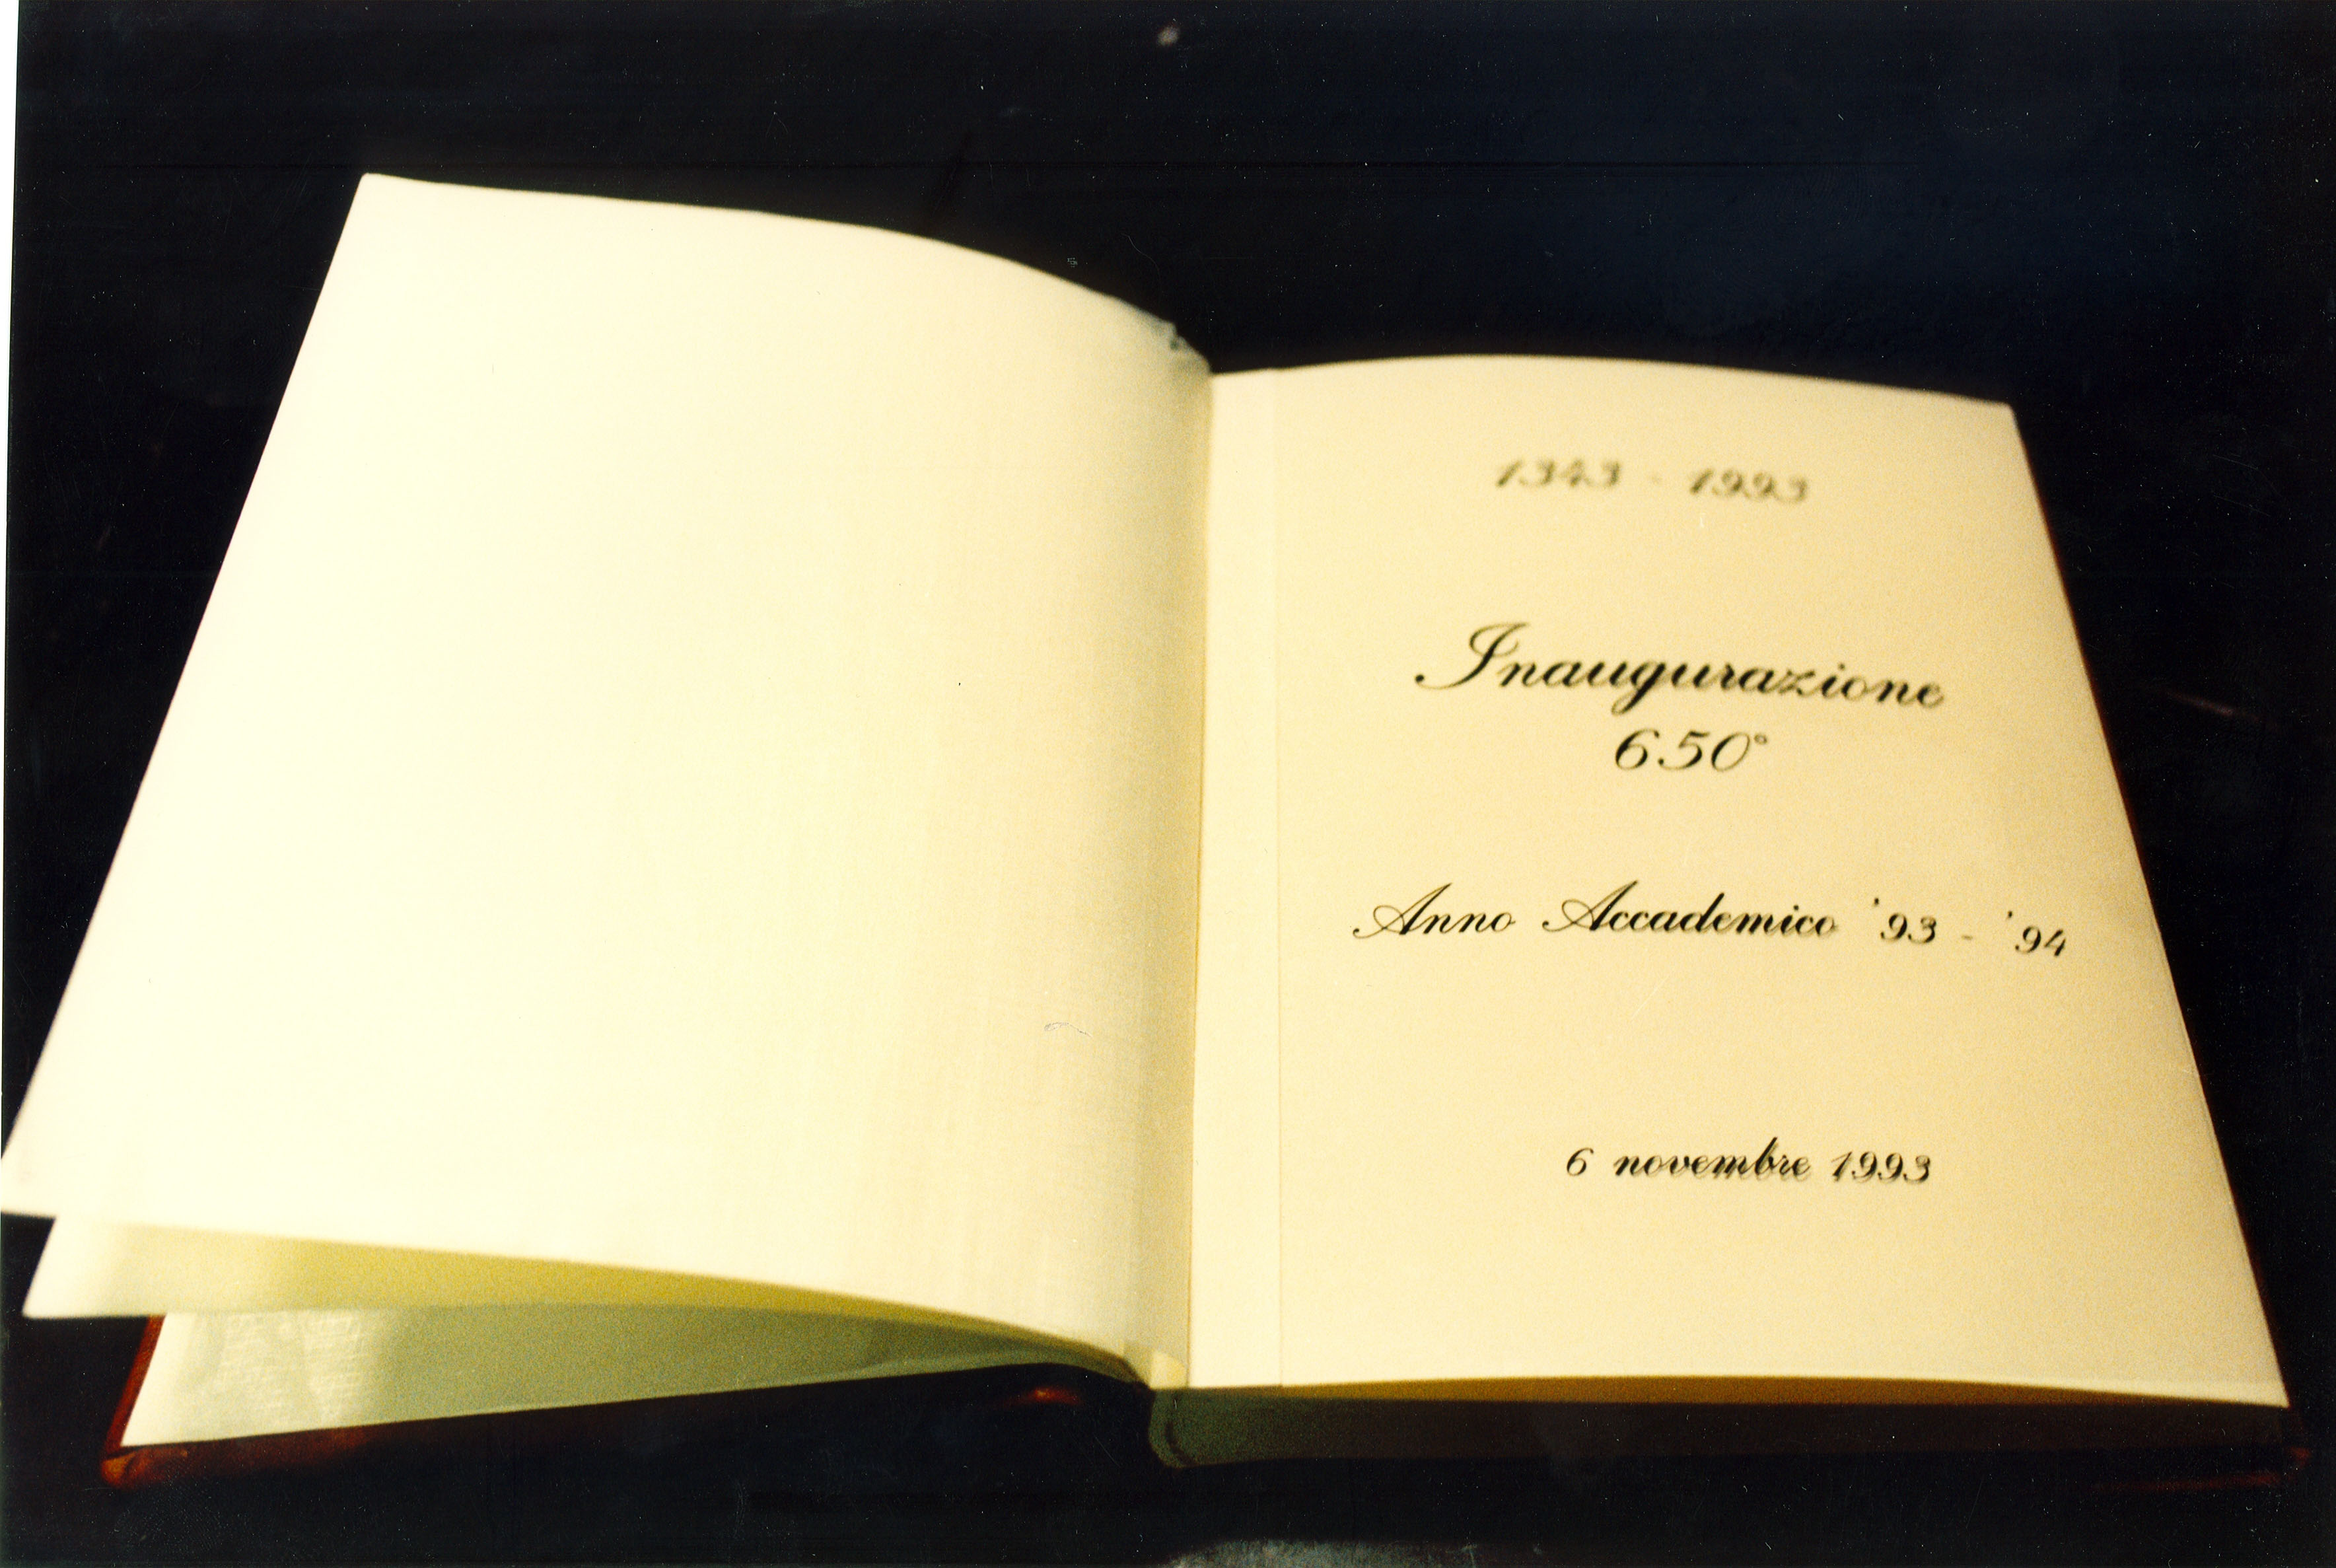 1343 - 1993
Inaugurazione
650°
Anno Accademico '93 - '94
6 novembre 1993